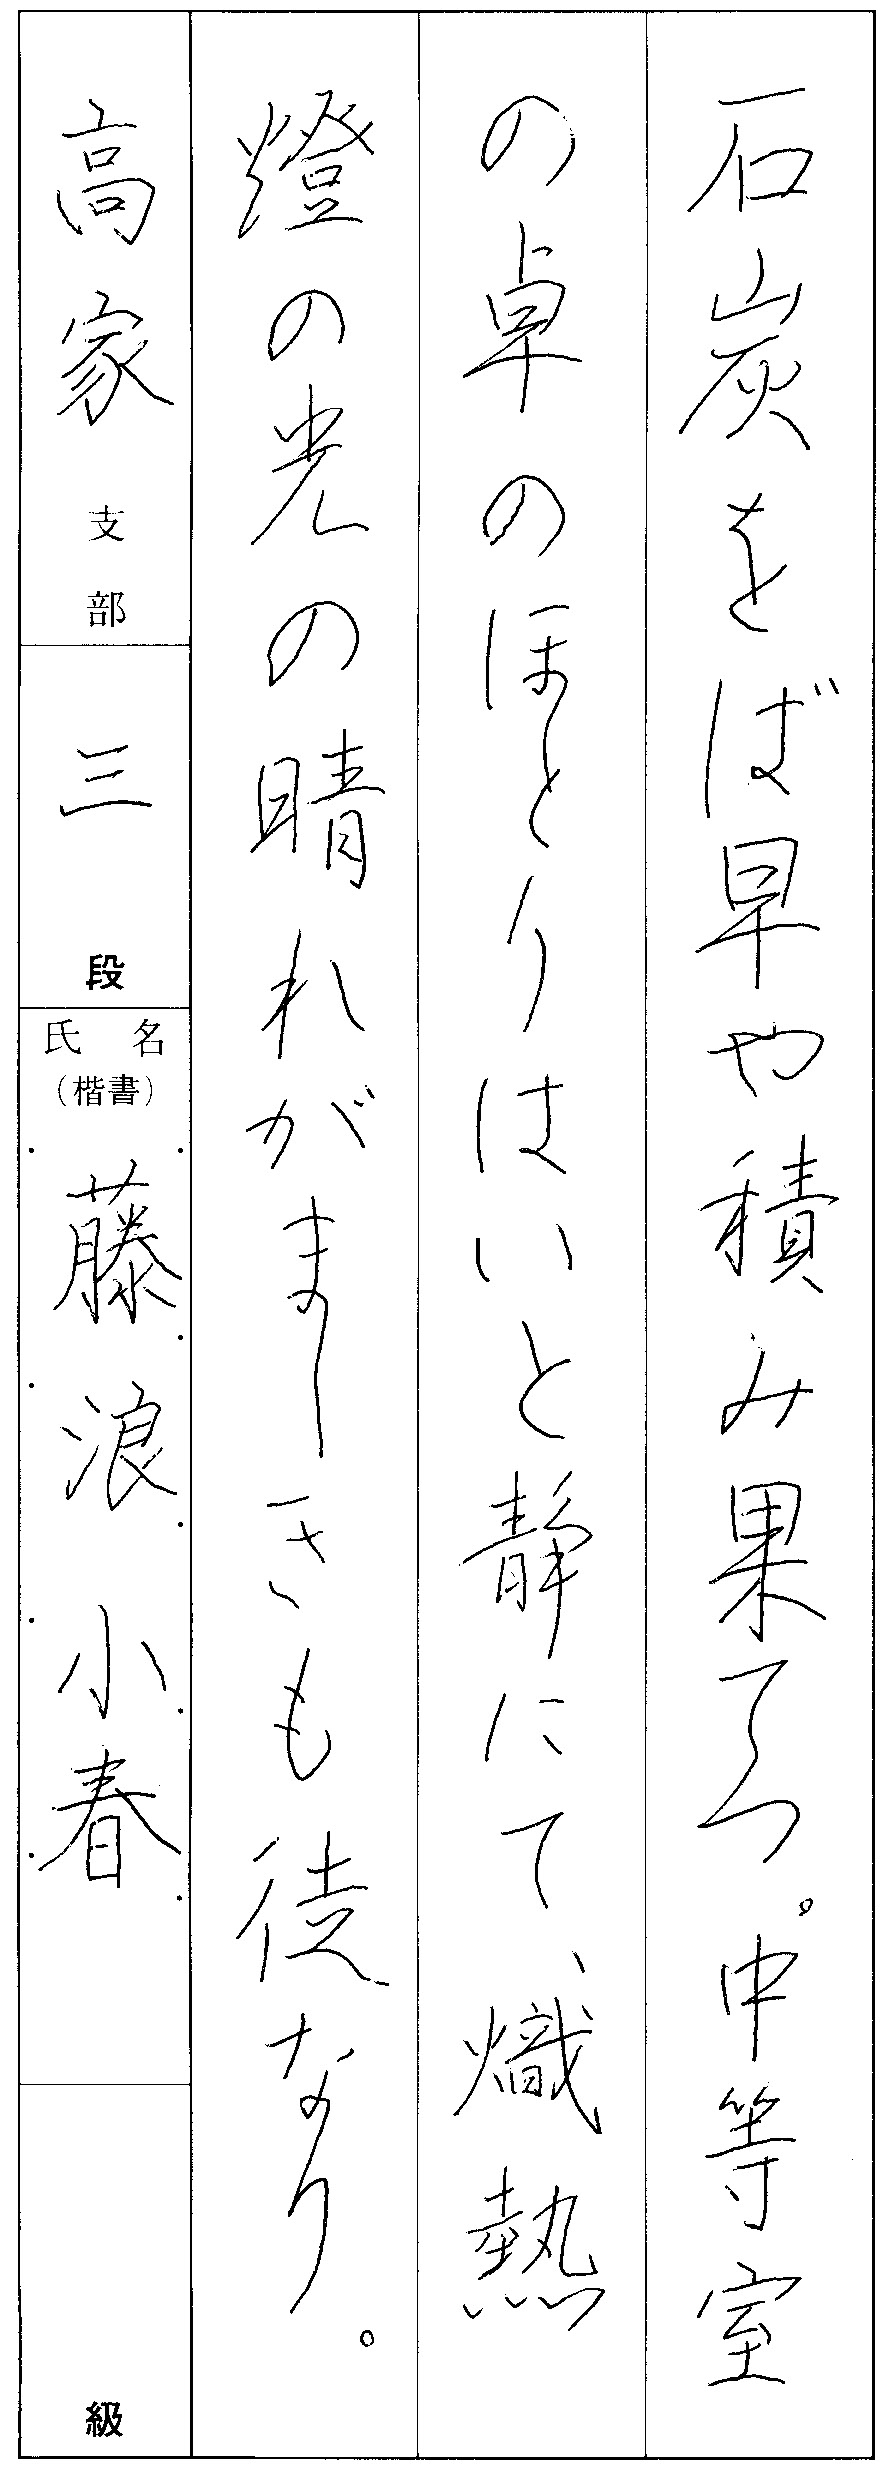 石炭をば早や積み果てつ。中等室
の卓のほとりはいと静にて、熾熱
燈の光の晴れがましきも徒なり。
高家支部
三段
氏名
(楷書)
藤浪小春
級